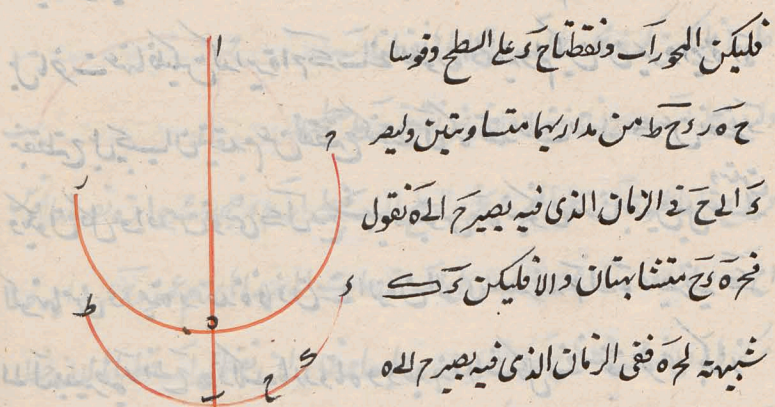 فليكن المحور اَب ونقطتا ح ءَ على السطح وقوسا
ح ه ر ء ح ط من مداريهما متساويتين وليصر
ءَ الى حَ فى الزمان الذى فيه يصير حَ الى هَ نقول
فحرَ هَ ءَ حَ متشابهتان والا فليكن ءَ كَ
شبيهة لحرَ هَ ففى الزمان الذى فيه يصير حَ الى ه
ا
ح
ر
ه
ء
ط
ك
ح
ب